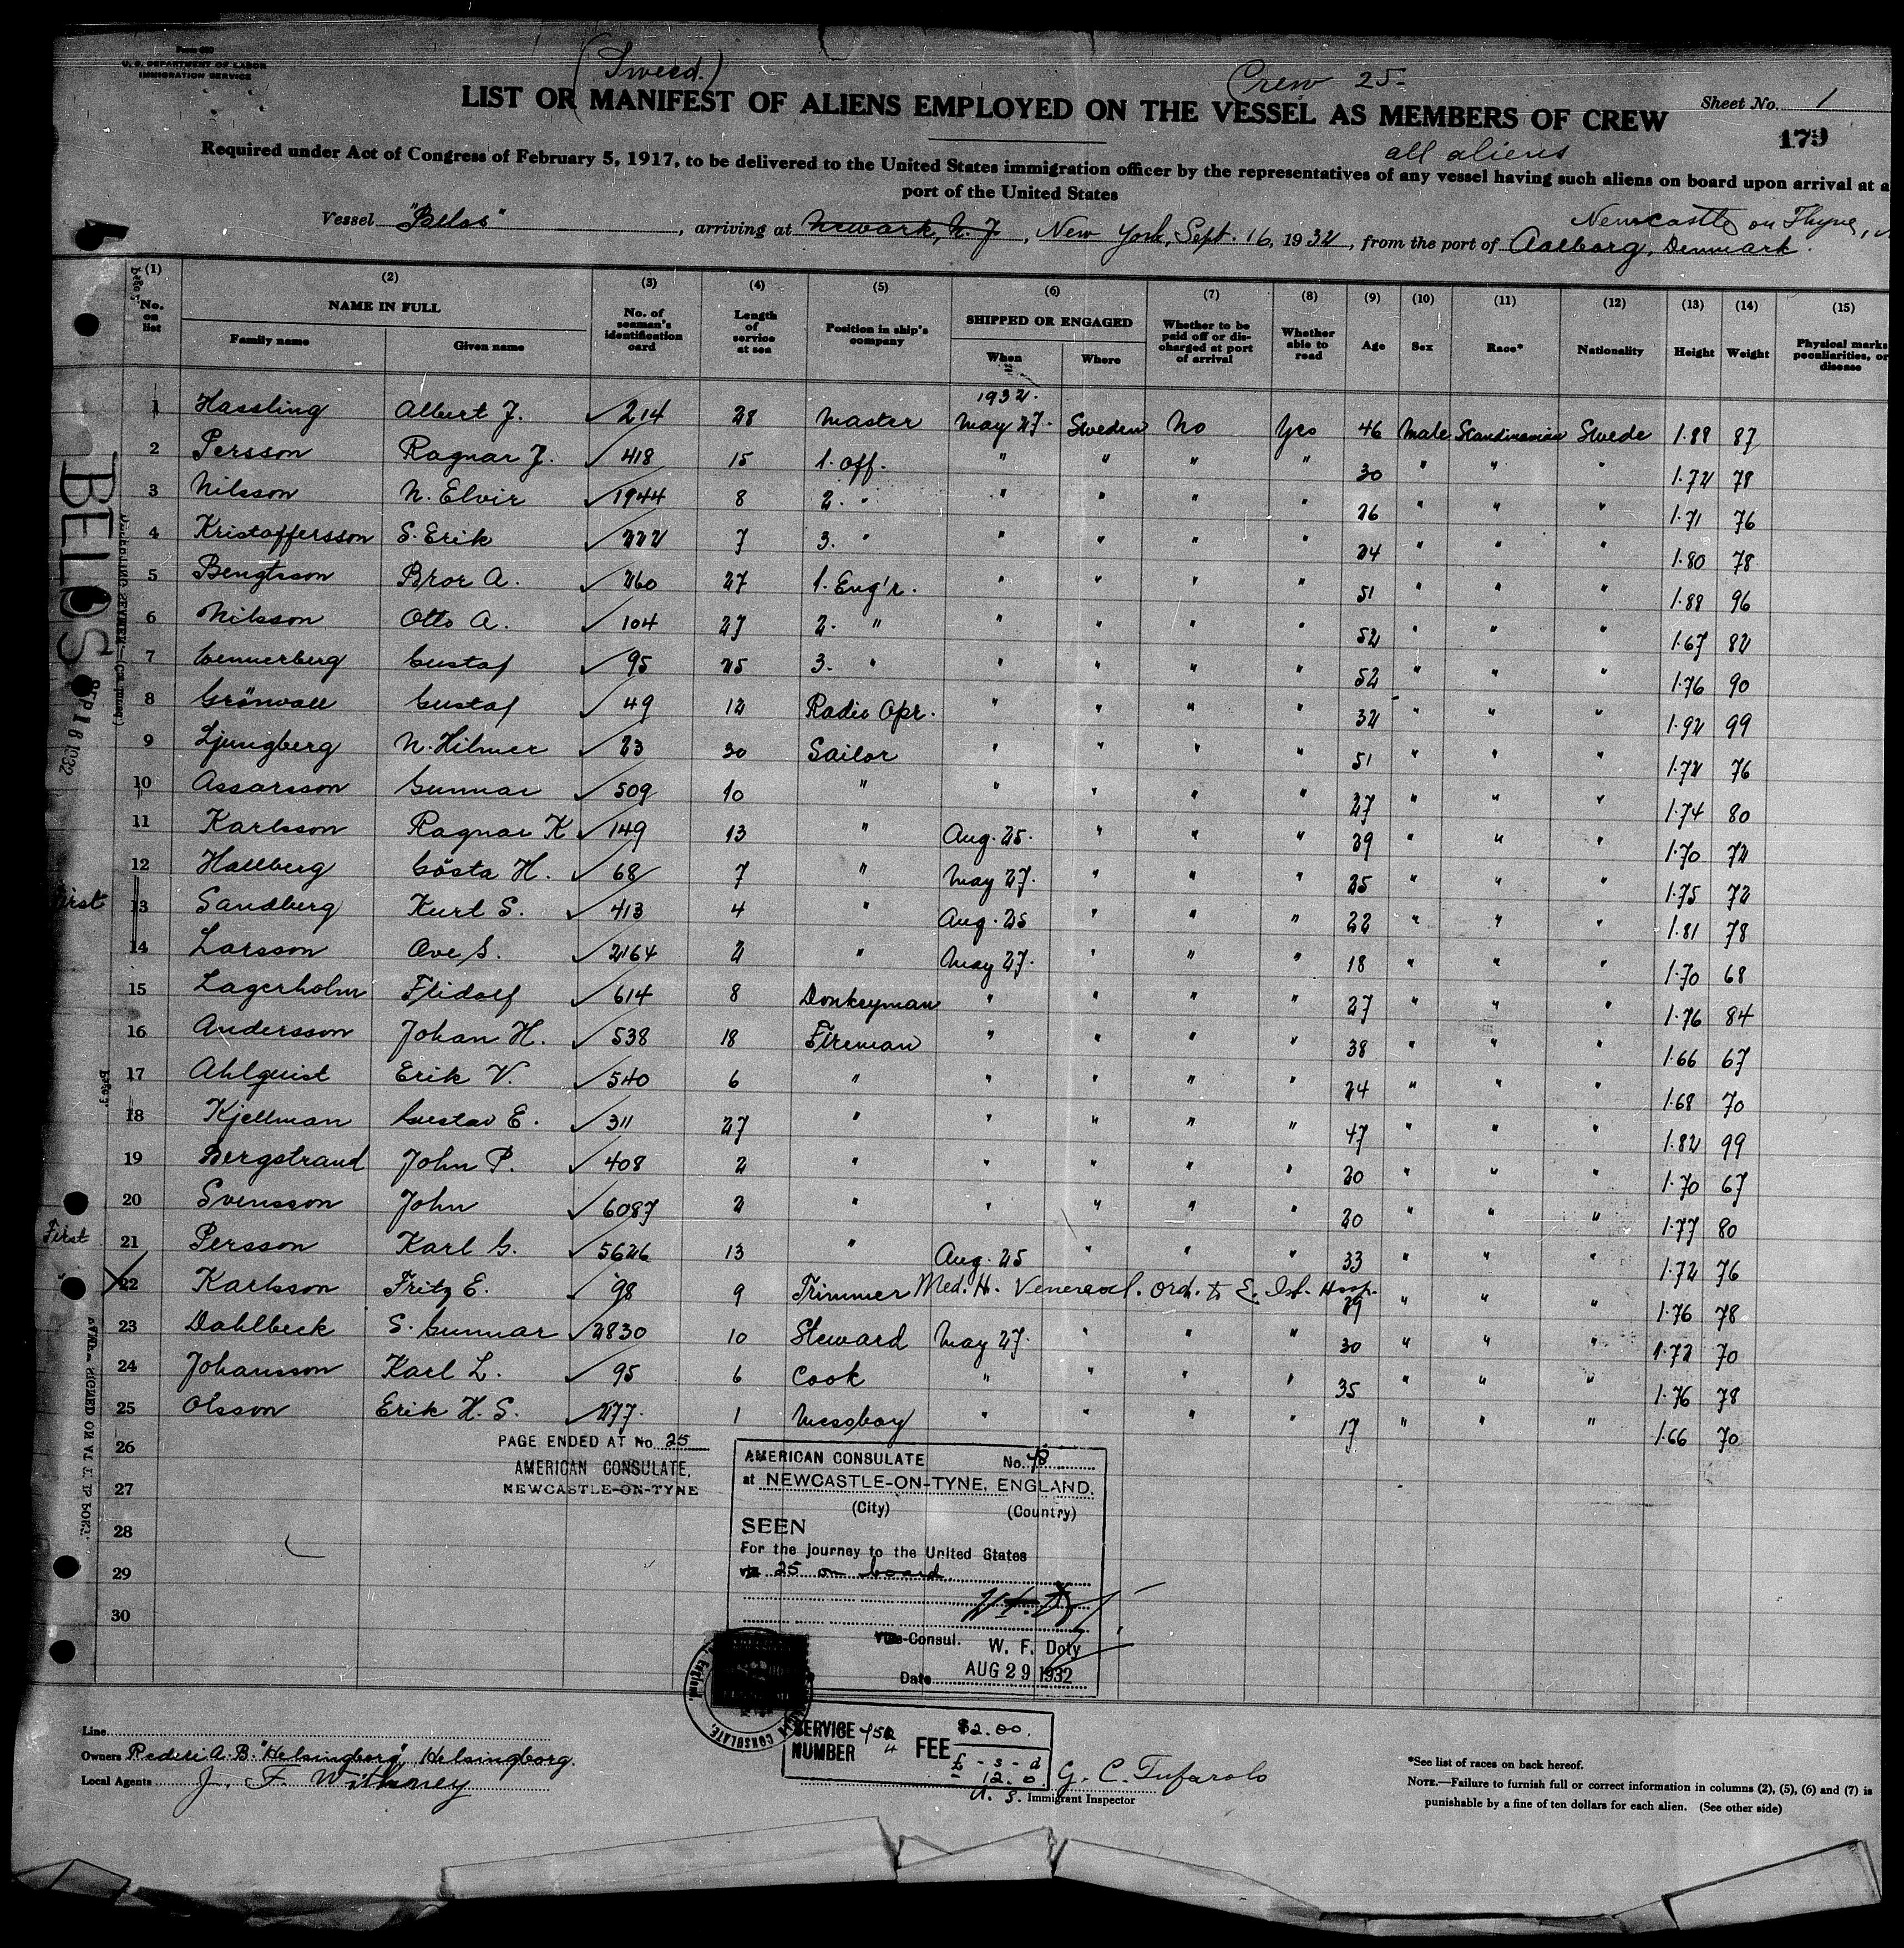 Form 680
U. S. DEPARTMENT OF LABOR
IMMIGRATION SERVICE
(Sweed.)
Crew 25.
Sheet No. 1
LIST OR MANIFEST OF ALIENS EMPLOYED ON THE VESSEL AS MEMBERS OF CREW
179
all aliens
Required under Act of Congress of February 5, 1917, to be delivered to the United States immigration officer by the representatives of any vessel having such aliens on board upon arrival at a
port of the United States
Newcastle on Thyne,
Vessel "Belos", arriving at Newark, N. J, New York, Sept. 16, 1932, from the port of Aalborg, Denmark.
(1) (2) (3) (4) (5) (6) (7) (8) (9) (10) (11) (12) (13) (14) (15)
No. on list NAME IN FULL Family name Given name No. of seaman's identification card Length of service at sea Position in ship's company SHIPPED OR ENGAGED When Where Whether to be paid off or discharged at port of arrival Whether able to read Age Sex Race* Nationality Height Weight Physical marks, peculiarities, or disease
1932.
1 Hassling Albert J. ✓ 214 28 Master May 27. Sweden No Yes 46 Male Scandinavian Swede 1.88 87
2 Persson Ragnar J. ✓ 418 15 1. Off. " " " " 30 " " " 1.72 78
3 Nilsson N. Elvir ✓ 1944 8 2. " " " " " 26 " " " 1.71 76
4 Kristoffersson S. Erik ✓ 222 7 3. " " " " " 24 " " " 1.80 78
5 Bengtsson Bror A. ✓ 260 27 1. Eng'r. " " " " 51 " " " 1.88 96
6 Nilsson Otto A. ✓ 104 27 2. " " " " " 52 " " " 1.67 82
7 Wennerberg Gustaf ✓ 95 25 3. " " " " " 52 " " " 1.76 90
8 Grönvall Gustaf ✓ 49 12 Radio Opr. " " " " 32 " " " 1.92 99
9 Ljungberg N. Hilmer ✓ 23 30 Sailor " " " " 51 " " " 1.72 76
10 Assarsson Gunnar ✓ 509 10 " " " " " 27 " " " 1.74 80
11 Karlsson Ragnar K ✓ 149 13 " Aug. 25. " " " 29 " " " 1.70 72
12 Hallberg Gösta H. ✓ 68 7 " May 27. " " " 25 " " " 1.75 72
First 13 Sandberg Kurt S. ✓ 413 4 " Aug. 25 " " " 22 " " " 1.81 78
14 Larsson Ove S. ✓ 2164 2 " May 27. " " " 18 " " " 1.70 68
15 Lagerholm Fridolf ✓ 614 8 Donkeyman " " " " 27 " " " 1.76 84
16 Andersson Johan H. ✓ 538 18 Fireman " " " " 38 " " " 1.66 67
17 Ahlquist Erik V. ✓ 540 6 " " " " " 24 " " " 1.68 70
18 Kjellman Gustav E. ✓ 311 27 " " " " " 47 " " " 1.82 99
19 Bergstrand John P. ✓ 408 2 " " " " " 20 " " " 1.70 67
20 Svensson John ✓ 6087 2 " " " " " 20 " " " 1.77 80
First 21 Persson Karl G. ✓ 5626 13 " Aug. 25 " " " 33 " " " 1.72 76
22 Karlsson Fritz E. ✓ 98 9 Trimmer Med. H. Venereal. Ord. to E. Isl. Hosp. 29 " " " 1.76 78
23 Dahlbeck S. Gunnar ✓ 2830 10 Steward May 27. " " " 30 " " " 1.72 70
24 Johansson Karl L. ✓ 95 6 Cook " " " " 35 " " " 1.76 78
25 Olsson Erik H. S. ✓ 277. 1 Messboy " " " " 17 " " " 1.66 70
26
27
28
29
30
BELOS
SEP 16 1932
PAGE ENDED AT No. 25
AMERICAN CONSULATE,
NEWCASTLE-ON-TYNE
AMERICAN CONSULATE No.
at NEWCASTLE-ON-TYNE, ENGLAND.
(City) (Country)
SEEN
For the journey to the United States
via 25 on board
Vice-Consul. W. F. Doty
Date AUG 29 1932
SERVICE NUMBER FEE $2.00.
£ - s - d
- 12. 0
Line
Owners Rederi A. B. "Helsingborg", Helsingborg.
Local Agents J. F. Withney
G. C. Tufarolo
Immigrant Inspector
*See list of races on back hereof.
NOTE.—Failure to furnish full or correct information in columns (2), (5), (6) and (7) is
punishable by a fine of ten dollars for each alien. (See other side)